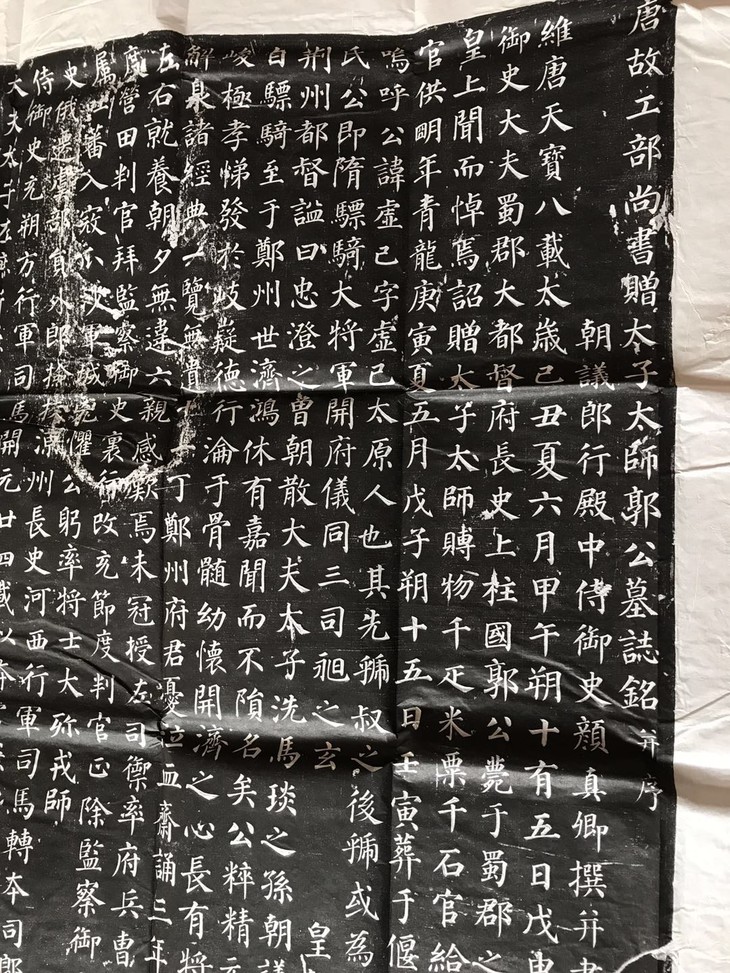 唐故工部尚書贈太子太師郭公墓誌銘并序
朝議郎行殿中侍御史顏真卿撰并書
維唐天寶八載太歲己丑夏六月甲午朔十有五日戊申
御史大夫蜀郡大都督府長史上柱國郭公薨于蜀郡之
皇上聞而悼焉詔贈太子太師賻物千疋米粟千石官給
官供明年青龍庚寅夏五月戊子朔十五日壬寅葬于偃
嗚呼公諱虛己字虛己太原人也其先虢叔之後虢或為
氏公即隋驃騎大將軍開府儀同三司昶之玄
荊州都督謚曰忠澄之曾朝散大夫太子洗馬琰之孫朝議
自驃騎至于鄭州世濟鴻休有嘉聞而不隕名矣公粹精元
峻極孝悌發於岐嶷德行淪于骨髓幼懷開濟之心長有將
解 泉諸經典一覽無遺十丁鄭州府君憂泣血齋誦三年
左右就養朝夕無違六親感歎焉未冠授左司禦率府兵曹
度營田判官拜監察御史裏行改充節度判官正除監察御
屬 蕃入寇 軍 懼公躬率將士大殄戎師
史俄遷 部員外郎檢校涼州長史河西行軍司馬轉本司郎
侍御史充朔方行軍司馬開元廿四載以本官
大夫太子左